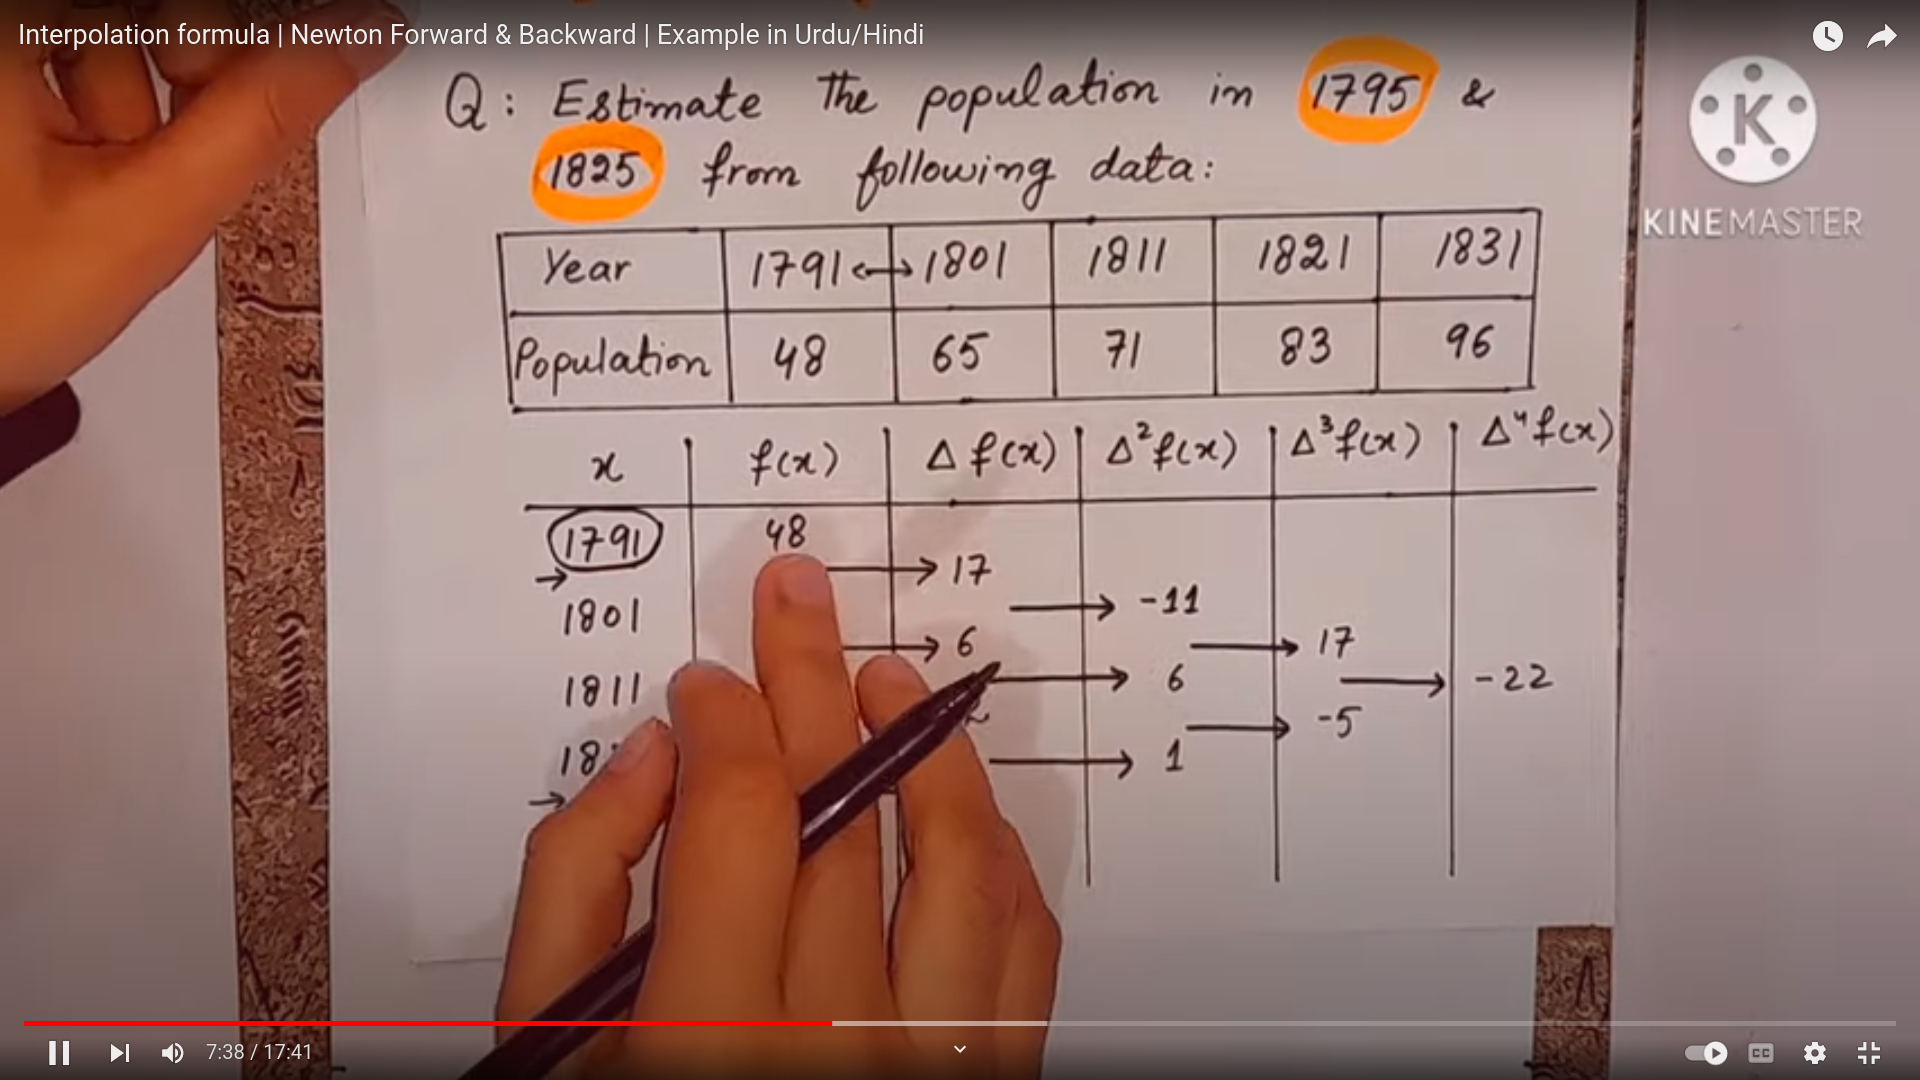 Interpolation formula | Newton Forward & Backward | Example in Urdu/Hindi
Q: Estimate the population in 1795 &
1825 from following data:
KINEMASTER
Year 1791 ↔ 1801 1811 1821 1831
Population 48 65 71 83 96
x f(x) Δf(x) Δ²f(x) Δ³f(x) Δ⁴f(x)
1791 48
→ → 17
→ -11
1801
→ 6 → 17
1811 → 6 → -22
→ -5
→ 1
→
7:38 / 17:41
CC